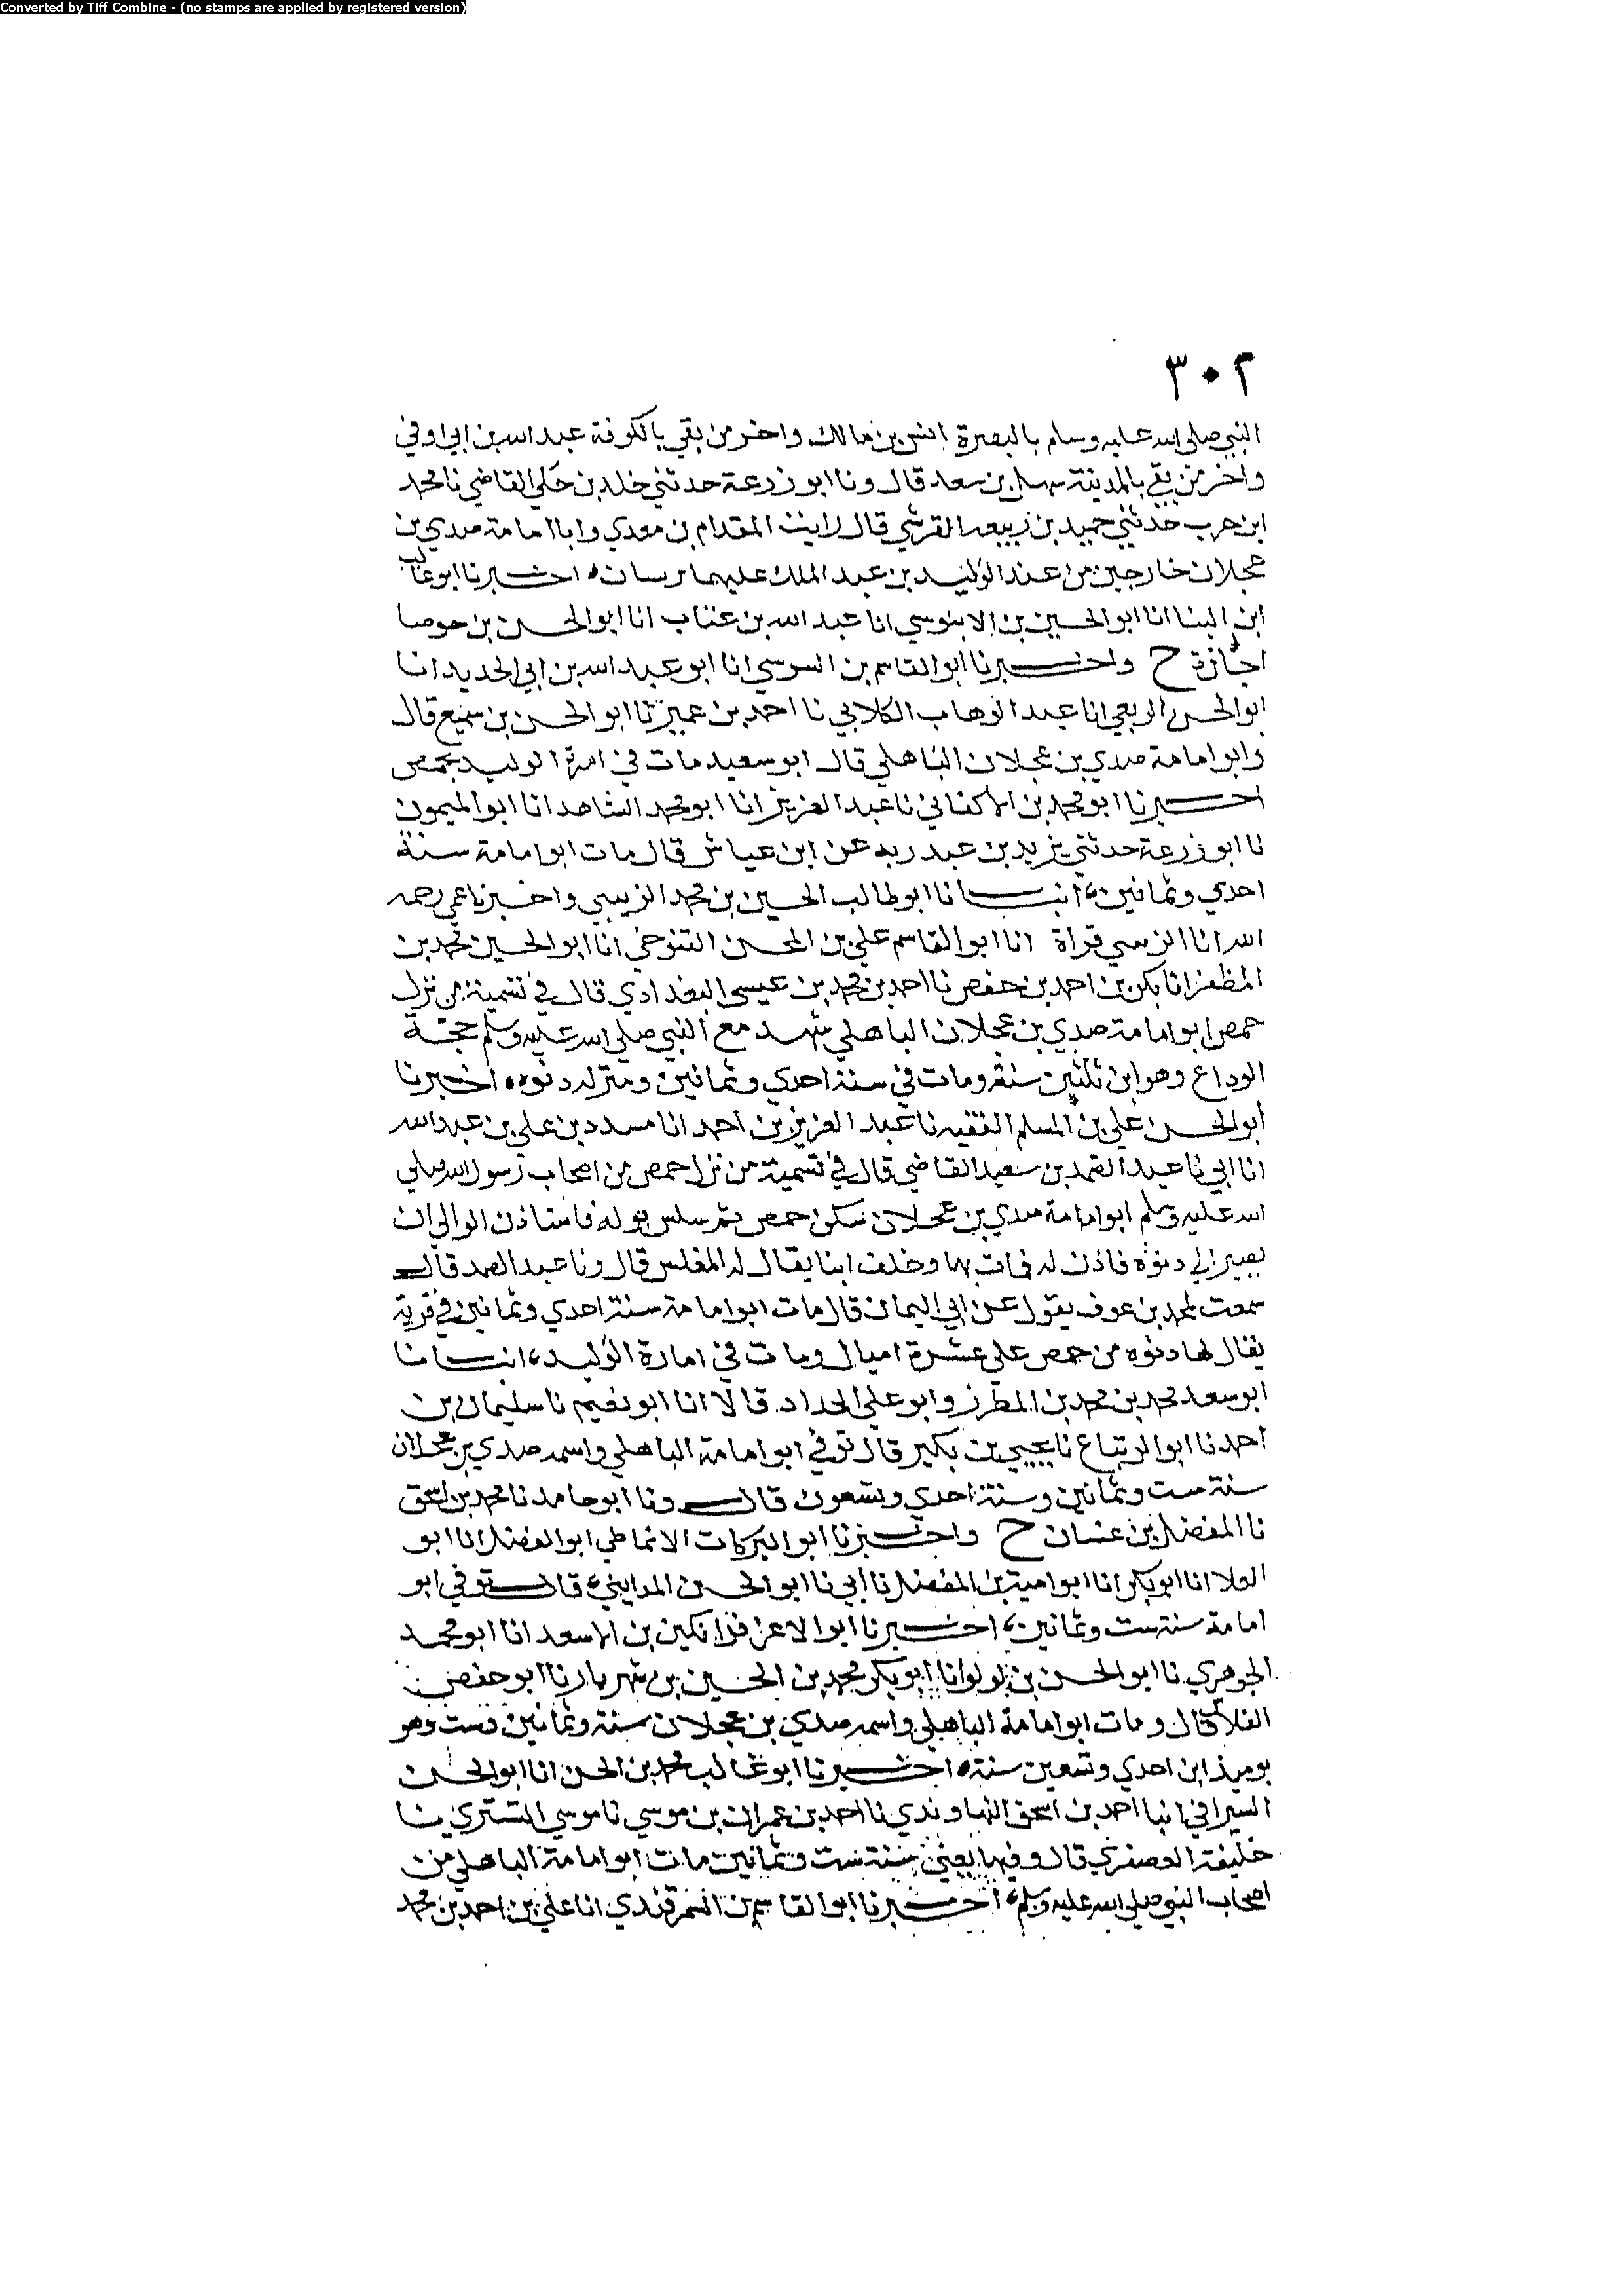 Converted by Tiff Combine - (no stamps are applied by registered version)
٣٠٢
النبي صلى الله عليه وسلم بالبصرة انس بن مالك واخر من بقي بالكوفة عبد الله بن ابي اوفي
واخر من بقي بالمدينة سهل بن سعد قال ونا ابو زرعة حدثني خلد بن خلي القاضي نا محمد
ابن حرب حدثني حميد بن ربيعه القرشي قال رايت المقدام بن معدي وابا امامة صدي بن
عجلان خارجين من عند الوليد بن عبد الملك عليهما برنسان اخبرنا ابو غالب
ابن البنا انا ابو الحسين بن الابنوسي انا عبد الله بن عتاب انا ابو الحسن بن جوصا
اجازة ح واخبرنا ابو القاسم بن السوسي انا ابو عبد الله بن ابي الحديد انا
ابو الحسن الربعي انا عبد الوهاب الكلابي نا احمد بن عمير نا ابو الحسن بن سميع قال
وابو امامة صدي بن عجلان الباهلي قال ابو سعيد مات في امرة الوليد بحمص
اخبرنا ابو محمد بن الاكفاني نا عبد العزيز انا ابو محمد الشاهد انا ابو الميمون
نا ابو زرعة حدثني يزيد بن عبد ربه عن ابن عياش قال مات ابو امامة سنة
احدي وثمانين انبانا ابو طالب الحسين بن محمد الزينبي واخبرنا عمي رحمه
الله انا الزينبي قراة انا ابو القاسم علي بن المحسن التنوخي انا ابو الحسين محمد بن
المظفر انا بكر بن احمد بن حفص نا احمد بن محمد بن عيسى البغدادي قال في تسمية من نزل
حمص ابو امامة صدي بن عجلان الباهلي شهد مع النبي صلى الله عليه وسلم حجة
الوداع وهو ابن ثلثين سنة ومات في سنة احدي وثمانين ومنزله دنوه اخبرنا
ابو الحسن علي بن المسلم الفقيه نا عبد العزيز بن احمد انا مسدد بن علي بن عبد الله
انا ابي نا عبد الصمد بن سعيد القاضي قال في تسمية من نزل حمص من اصحاب رسول الله صلى
الله عليه وسلم ابو امامة صدي بن عجلان سكن حمص ثم سلس بوله فاستاذن الوالي ان
يصير الي دنوه فاذن له فمات بها وخلف ابنا يقال له المغلس قال ونا عبد الصمد قال
سمعت محمد بن عوف يقول عن ابي اليمان قال مات ابو امامة سنة احدي وثمانين في قرية
يقال لها دنوه من حمص علي عشرة اميال ومات في امارة الوليد انبانا
ابو سعد محمد بن محمد بن المطرز وابو علي الحداد قالا انا ابو نعيم نا سليمان بن
احمد نا ابو الزنباع نا يحيي بن بكير قال توفي ابو امامة الباهلي واسمه صدي بن عجلان
سنة ست وثمانين وسنة احدي وتسعون قال ونا ابو حامد نا محمد بن اسحق
نا المفضل بن غسان ح واخبرنا ابو البركات الانماطي ابو الفضل انا ابو
العلا انا ابو بكر انا ابو امية بن المفضل نا ابي نا ابو الحسن المدايني قال توفي ابو
امامة سنة ست وثمانين اخبرنا ابو الاعز قراتكين بن الاسعد انا ابو محمد
الجوهري نا ابو الحسن بن لولو انا ابو بكر محمد بن الحسين بن شهريار نا ابو حفص
الفلاس قال ومات ابو امامة الباهلي واسمه صدي بن عجلان سنة وثمانين وست وهو
يوميذ ابن احدي وتسعين سنة اخبرنا ابو غالب محمد بن الحسن انا ابو الحسن
السيرافي انبا احمد بن اسحق النهاوندي نا احمد بن عمران بن موسي نا موسي التستري نا
خليفة العصفري قال وفيها يعني سنة ست وثمانين مات ابو امامة الباهلي من
اصحاب النبي صلى الله عليه وسلم اخبرنا ابو القاسم بن السمرقندي انا علي بن احمد بن محمد